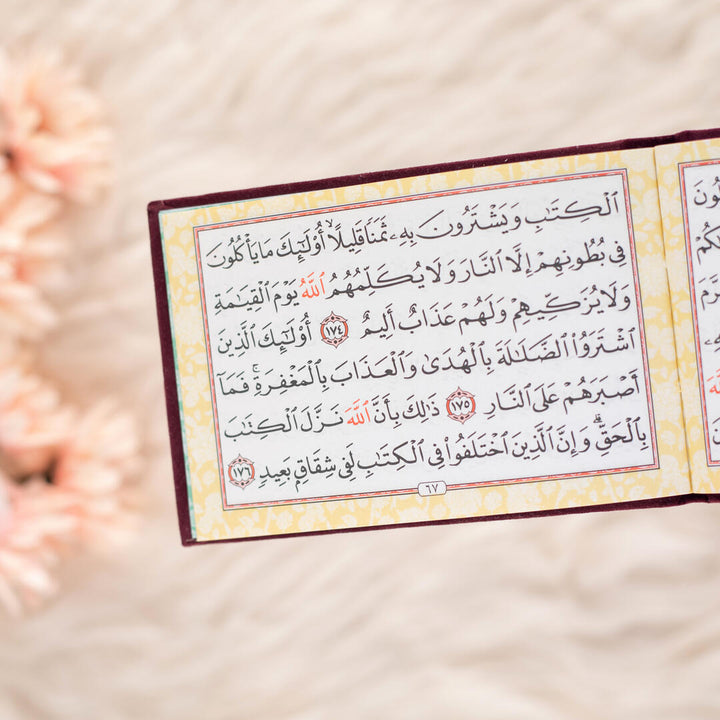 ٱلْكِتَٰبِ وَيَشْتَرُونَ بِهِۦ ثَمَنًا قَلِيلًا ۙ أُو۟لَٰٓئِكَ مَا يَأْكُلُونَ
فِى بُطُونِهِمْ إِلَّا ٱلنَّارَ وَلَا يُكَلِّمُهُمُ ٱللَّهُ يَوْمَ ٱلْقِيَٰمَةِ
وَلَا يُزَكِّيهِمْ وَلَهُمْ عَذَابٌ أَلِيمٌ ١٧٤ أُو۟لَٰٓئِكَ ٱلَّذِينَ
ٱشْتَرَوُا۟ ٱلضَّلَٰلَةَ بِٱلْهُدَىٰ وَٱلْعَذَابَ بِٱلْمَغْفِرَةِ ۚ فَمَآ
أَصْبَرَهُمْ عَلَى ٱلنَّارِ ١٧٥ ذَٰلِكَ بِأَنَّ ٱللَّهَ نَزَّلَ ٱلْكِتَٰبَ
بِٱلْحَقِّ ۗ وَإِنَّ ٱلَّذِينَ ٱخْتَلَفُوا۟ فِى ٱلْكِتَٰبِ لَفِى شِقَاقٍۭ بَعِيدٍ ١٧٦
٦٧